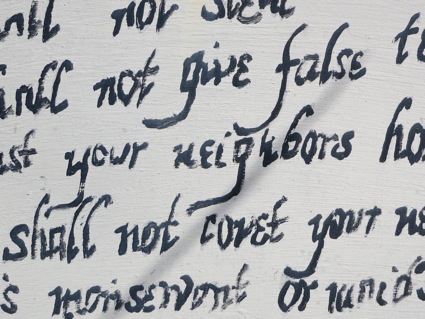 shall not steal
shall not give false te
st your neighbors ho
shall not covet your ne
's manservant or maids